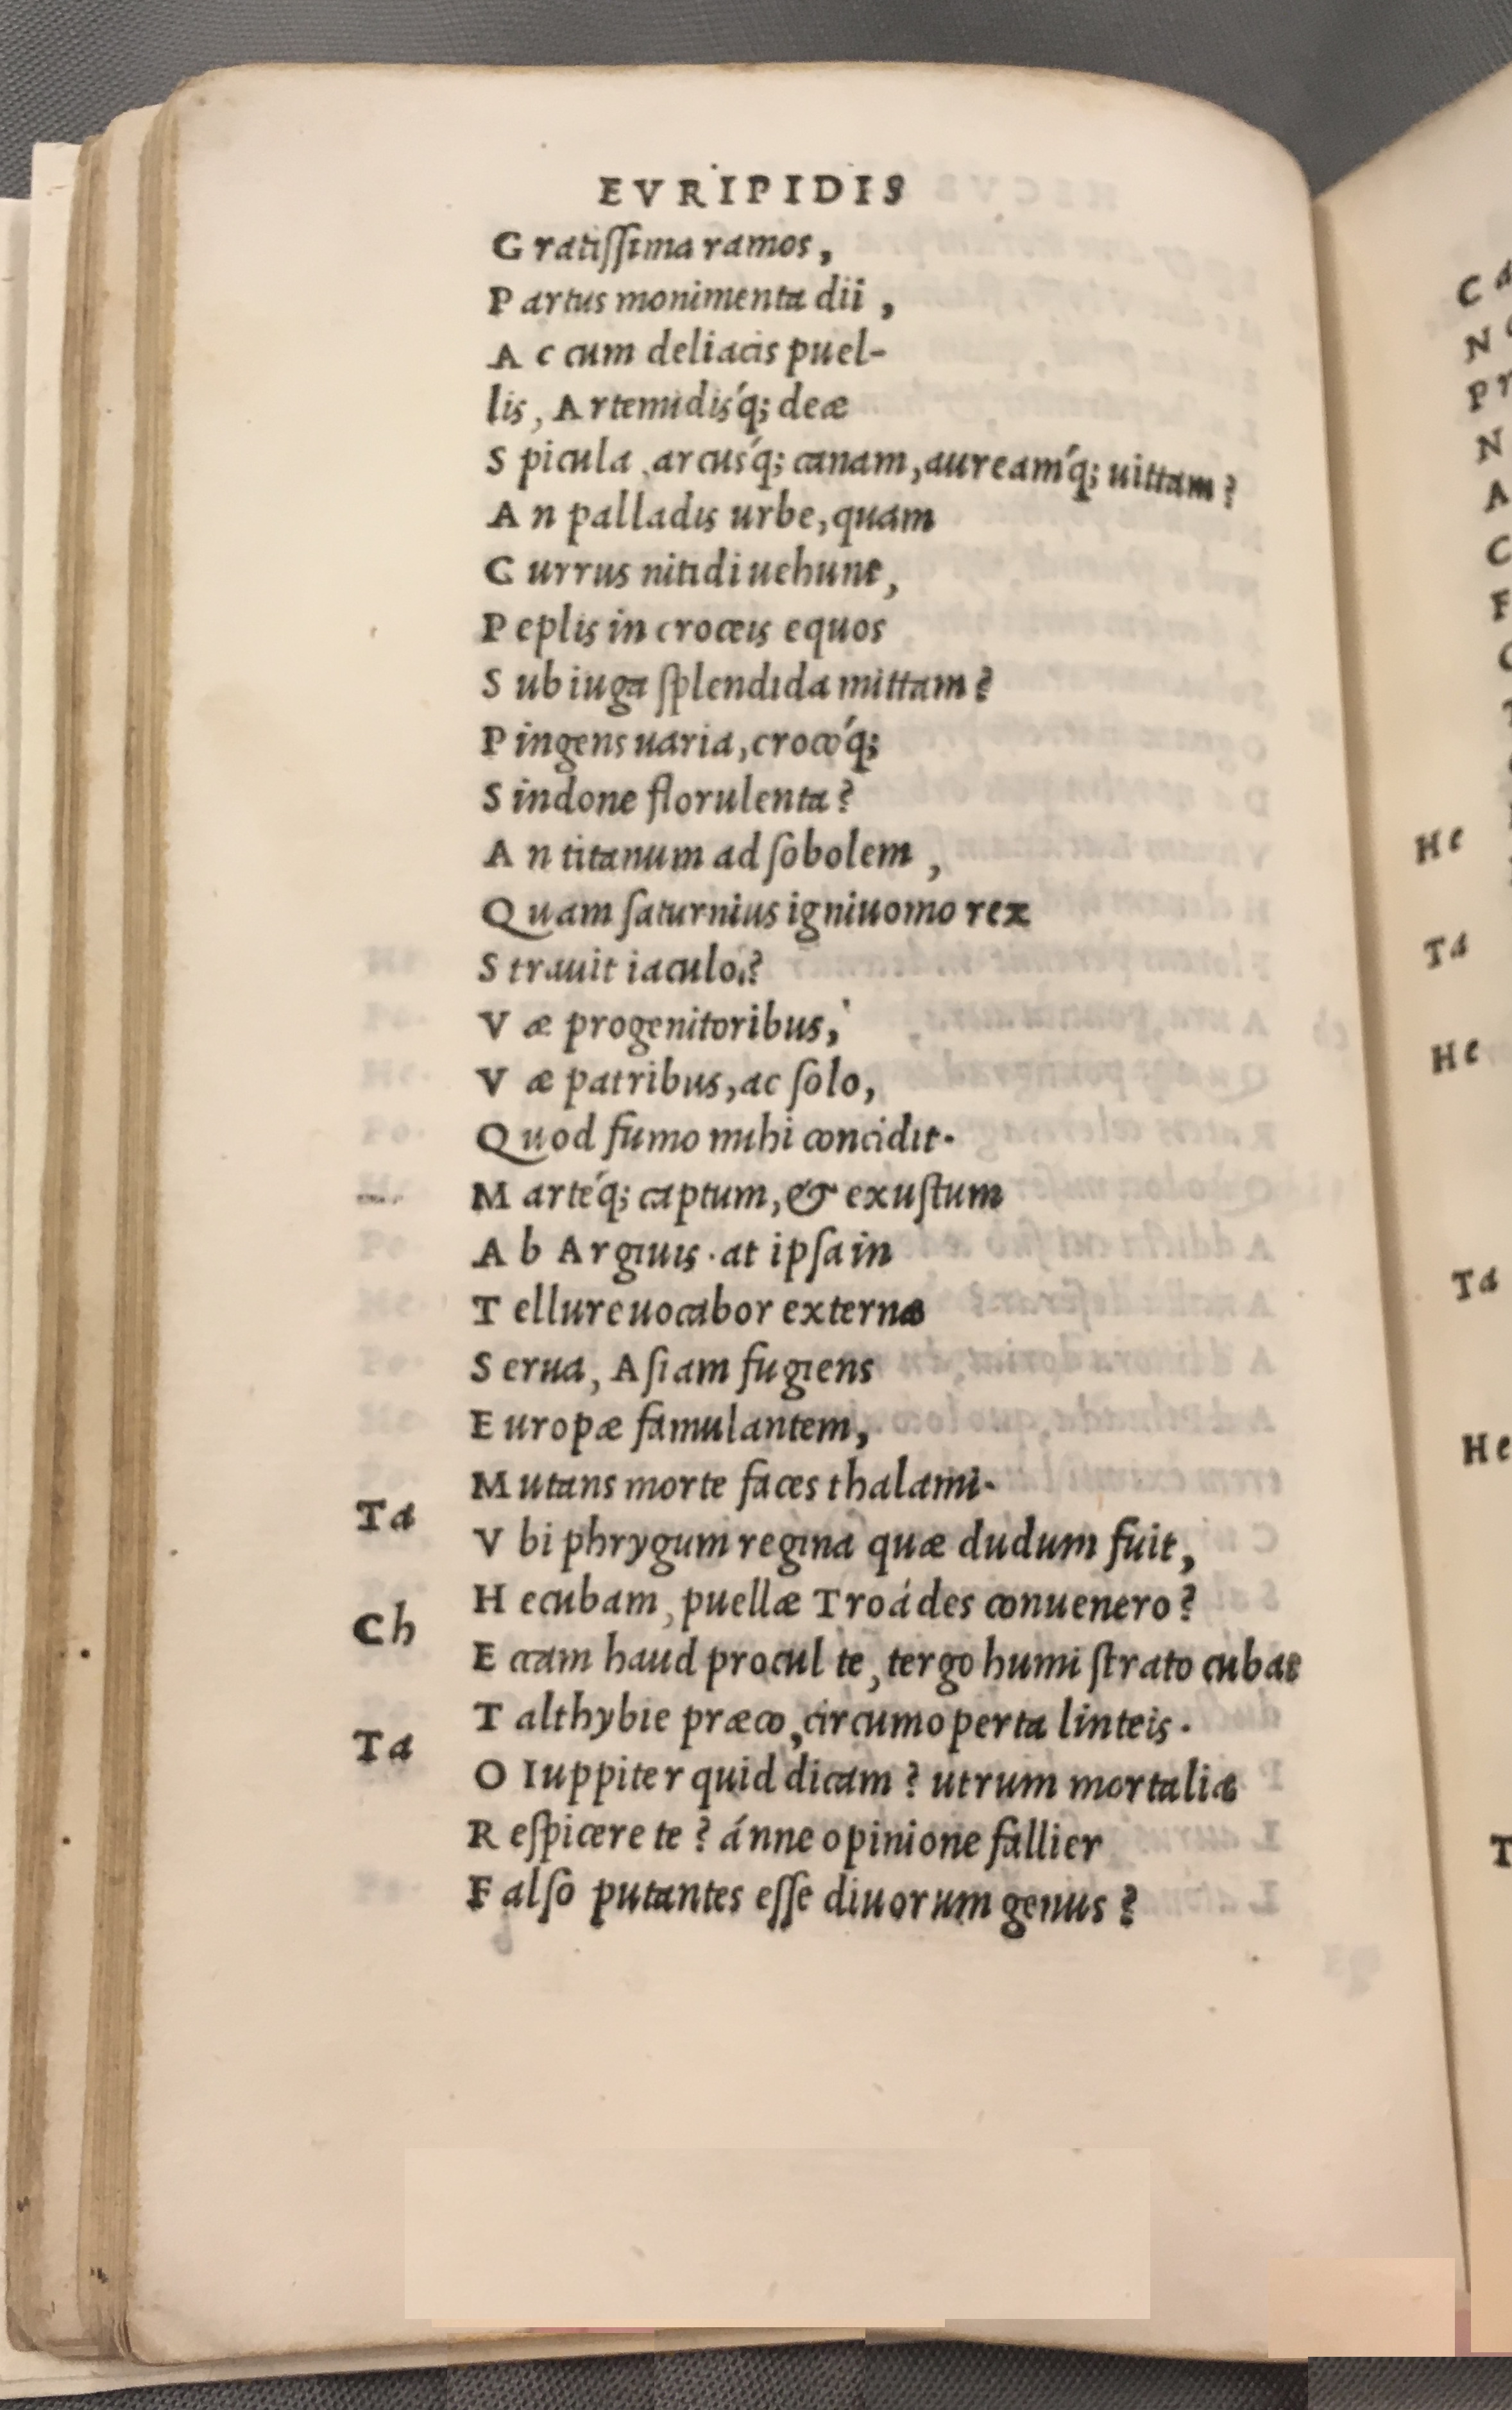 EVRIPIDIS
Gratiſſima ramos,
Partus monimenta dii,
Ac cum deliacis puel-
lis, Artemidisq́; deæ
Spicula, arcusq́; canam, aureamq́; uittam?
An palladis urbe, quam
Currus nitidi uehunt,
Peplis in croceis equos
Sub iuga ſplendida mittam?
Pingens uaria, croceoq́;
Sindone florulenta?
An titanum ad ſobolem,
Quam ſaturnius igniuomo rex
Strauit iaculo?
Væ progenitoribus,
Væ patribus, ac ſolo,
Quod fumo mihi concidit.
Marteq́; captum, & exuſtum
Ab Argiuis. at ipſa in
Tellure uocabor externa
Serua, Aſiam fugiens
Europæ famulantem,
Mutans morte faces thalami.
Ta
Vbi phrygum regina quæ dudum fuit,
Hecubam, puellæ Troádes conuenero?
Ch
Eccam haud procul te, tergo humi ſtrato cubat
Talthybie præco, circumoperta linteis.
Ta
O Iuppiter quid dicam? utrum mortalia
Reſpicere te? ánne opinione fallier
Falſo putantes eſſe diuorum genus?
He
Ta
He
Ta
He